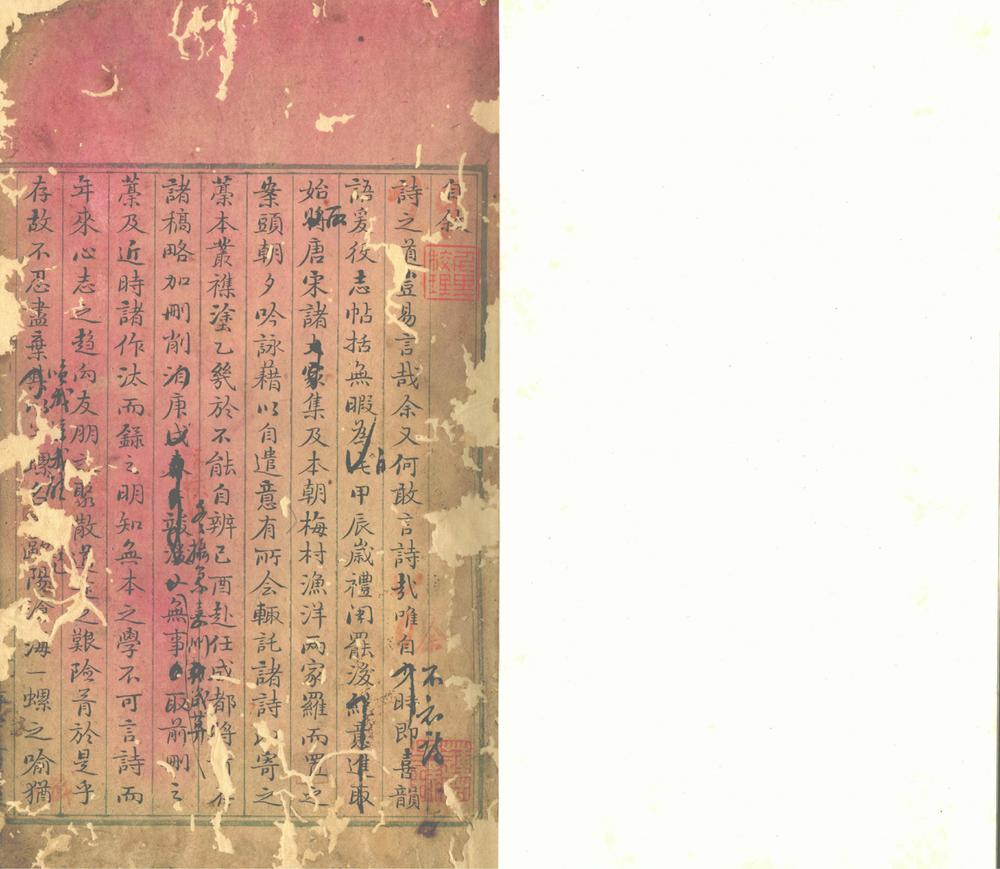 自叙
詩之道豈易言哉余又何敢言詩哉唯自少時即喜韻
語爰役志帖括無暇為此甲辰歲禮闈罷後絕意進取
始將唐宋諸大家集及本朝梅村漁洋兩家羅而置之
案頭朝夕吟詠藉以自遣意有所会輒託諸詩以寄之
藁本叢襍塗乙幾於不能自辨己酉赴任成都將
諸稿略加刪削洎庚戌無事取前刪之
藁及近時諸作汰而錄之明知無本之學不可言詩而
年來心志之趋向友朋聚散之艱險胥於是乎
存故不忍盡棄歐陽滄海一螺之喻猶